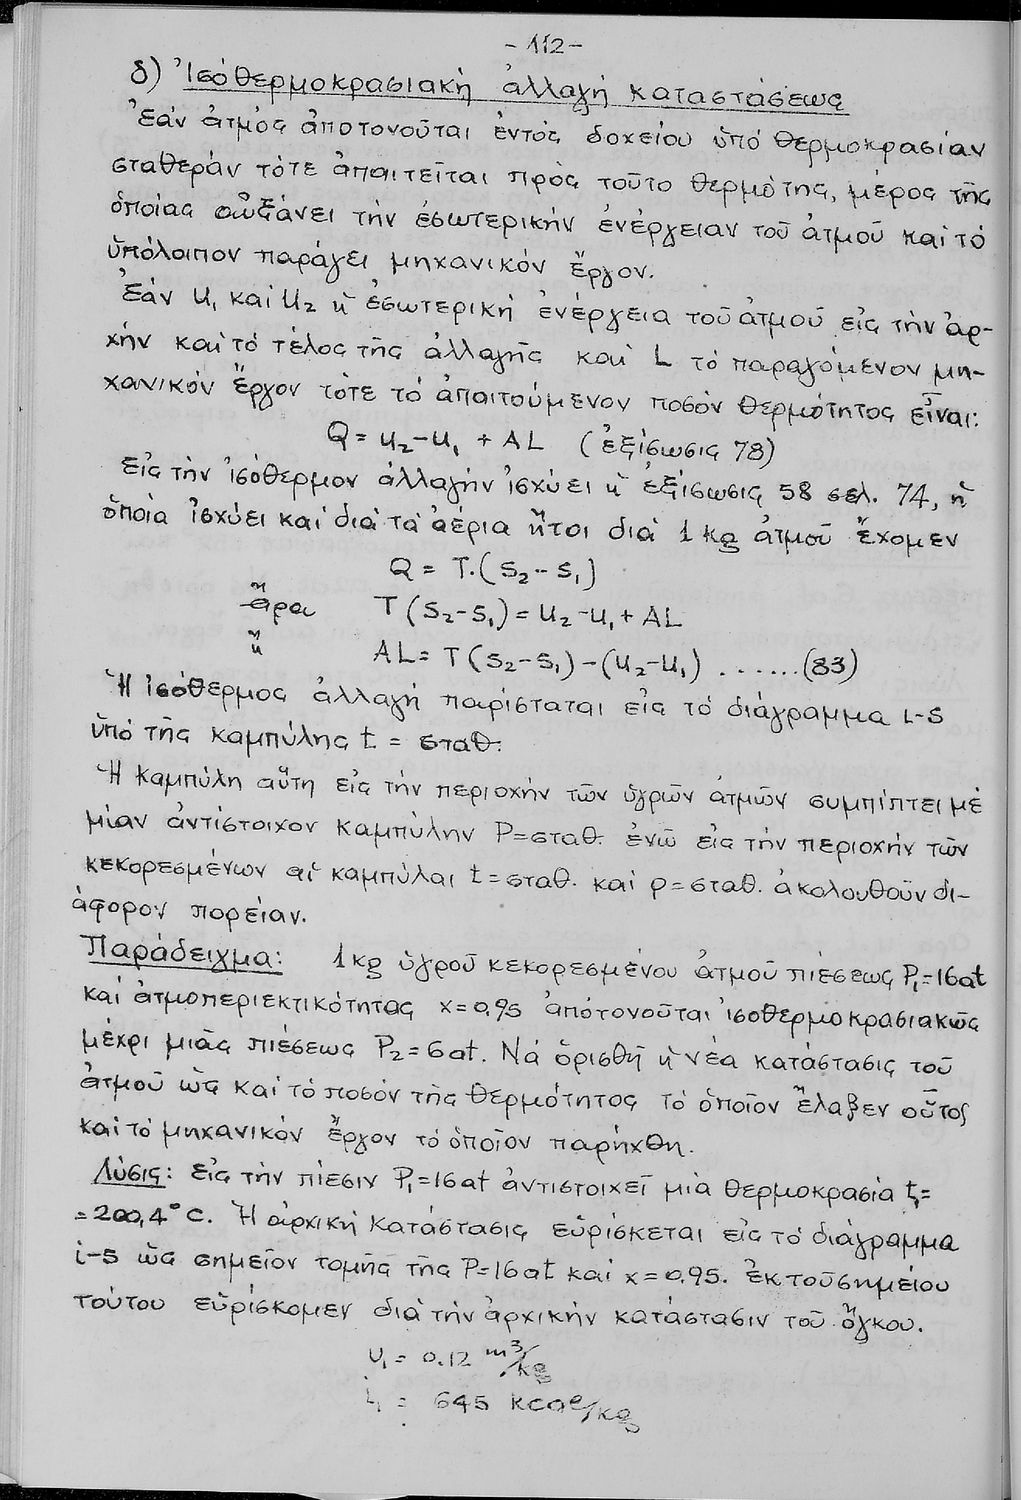 - 112 -
δ) Ἰσοθερμοκρασιακὴ ἀλλαγὴ καταστάσεως
Ἐάν ἀτμός ἀποτονοῦται ἐντός δοχείου ὑπό θερμοκρασίαν
σταθεράν τότε ἀπαιτεῖται πρός τοῦτο θερμότης, μέρος τῆς
ὁποίας αὐξάνει τὴν ἐσωτερικήν ἐνέργειαν τοῦ ἀτμοῦ καί τό
ὑπόλοιπον παράγει μηχανικόν ἔργον.
Ἐάν U₁ καί U₂ ἡ ἐσωτερική ἐνέργεια τοῦ ἀτμοῦ εἰς τήν ἀρ-
χήν καί τό τέλος τῆς ἀλλαγῆς καί L τό παραγόμενον μη-
χανικόν ἔργον τότε τό ἀπαιτούμενον ποσόν θερμότητος εἶναι:
Q = U₂-U₁ + AL (ἐξίσωσις 78)
εἰς τήν ἰσόθερμον ἀλλαγήν ἰσχύει ἡ ἐξίσωσις 58 σελ. 74, ἡ
ὁποία ἰσχύει καί διά τά ἀέρια ἤτοι διά 1 kg ἀτμοῦ ἔχομεν
Q = T.(S₂-S₁)
ἄρα T(S₂-S₁) = U₂-U₁ + AL
ἤ AL = T(S₂-S₁)-(U₂-U₁) ......(83)
Ἡ ἰσόθερμος ἀλλαγή παρίσταται εἰς τό διάγραμμα i-S
ὑπό τῆς καμπύλης t = σταθ.
Ἡ καμπύλη αὕτη εἰς τήν περιοχήν τῶν ὑγρῶν ἀτμῶν συμπίπτει μέ
μίαν ἀντίστοιχον καμπύλην P=σταθ. ἐνῶ εἰς τήν περιοχήν τῶν
κεκορεσμένων αἱ καμπύλαι t=σταθ. καί p=σταθ. ἀκολουθοῦν δι-
άφορον πορείαν.
Παράδειγμα: 1 kg ὑγροῦ κεκορεσμένου ἀτμοῦ πιέσεως P₁=16at
καί ἀτμοπεριεκτικότητας x=0,95 ἀποτονοῦται ἰσοθερμοκρασιακῶς
μέχρι μιᾶς πιέσεως P₂=6at. Νά ὁρισθῆ ἡ νέα κατάστασις τοῦ
ἀτμοῦ ὡς καί τό ποσόν τῆς θερμότητος τό ὁποῖον ἔλαβεν οὗτος
καί τό μηχανικόν ἔργον τό ὁποῖον παρήχθη.
Λύσις: εἰς τήν πίεσιν P₁=16at ἀντιστοιχεῖ μία θερμοκρασία t₁=
=200,4°C. Ἡ ἀρχική κατάστασις εὑρίσκεται εἰς τό διάγραμμα
i-S ὡς σημεῖον τομῆς τῆς P=16at καί x=0,95. ἐκ τοῦ σημείου
τούτου εὑρίσκομεν διά τήν ἀρχικήν κατάστασιν τοῦ ὄγκου.
U₁ = 0.12 m³/kg
i₁ = 645 kcal/kg